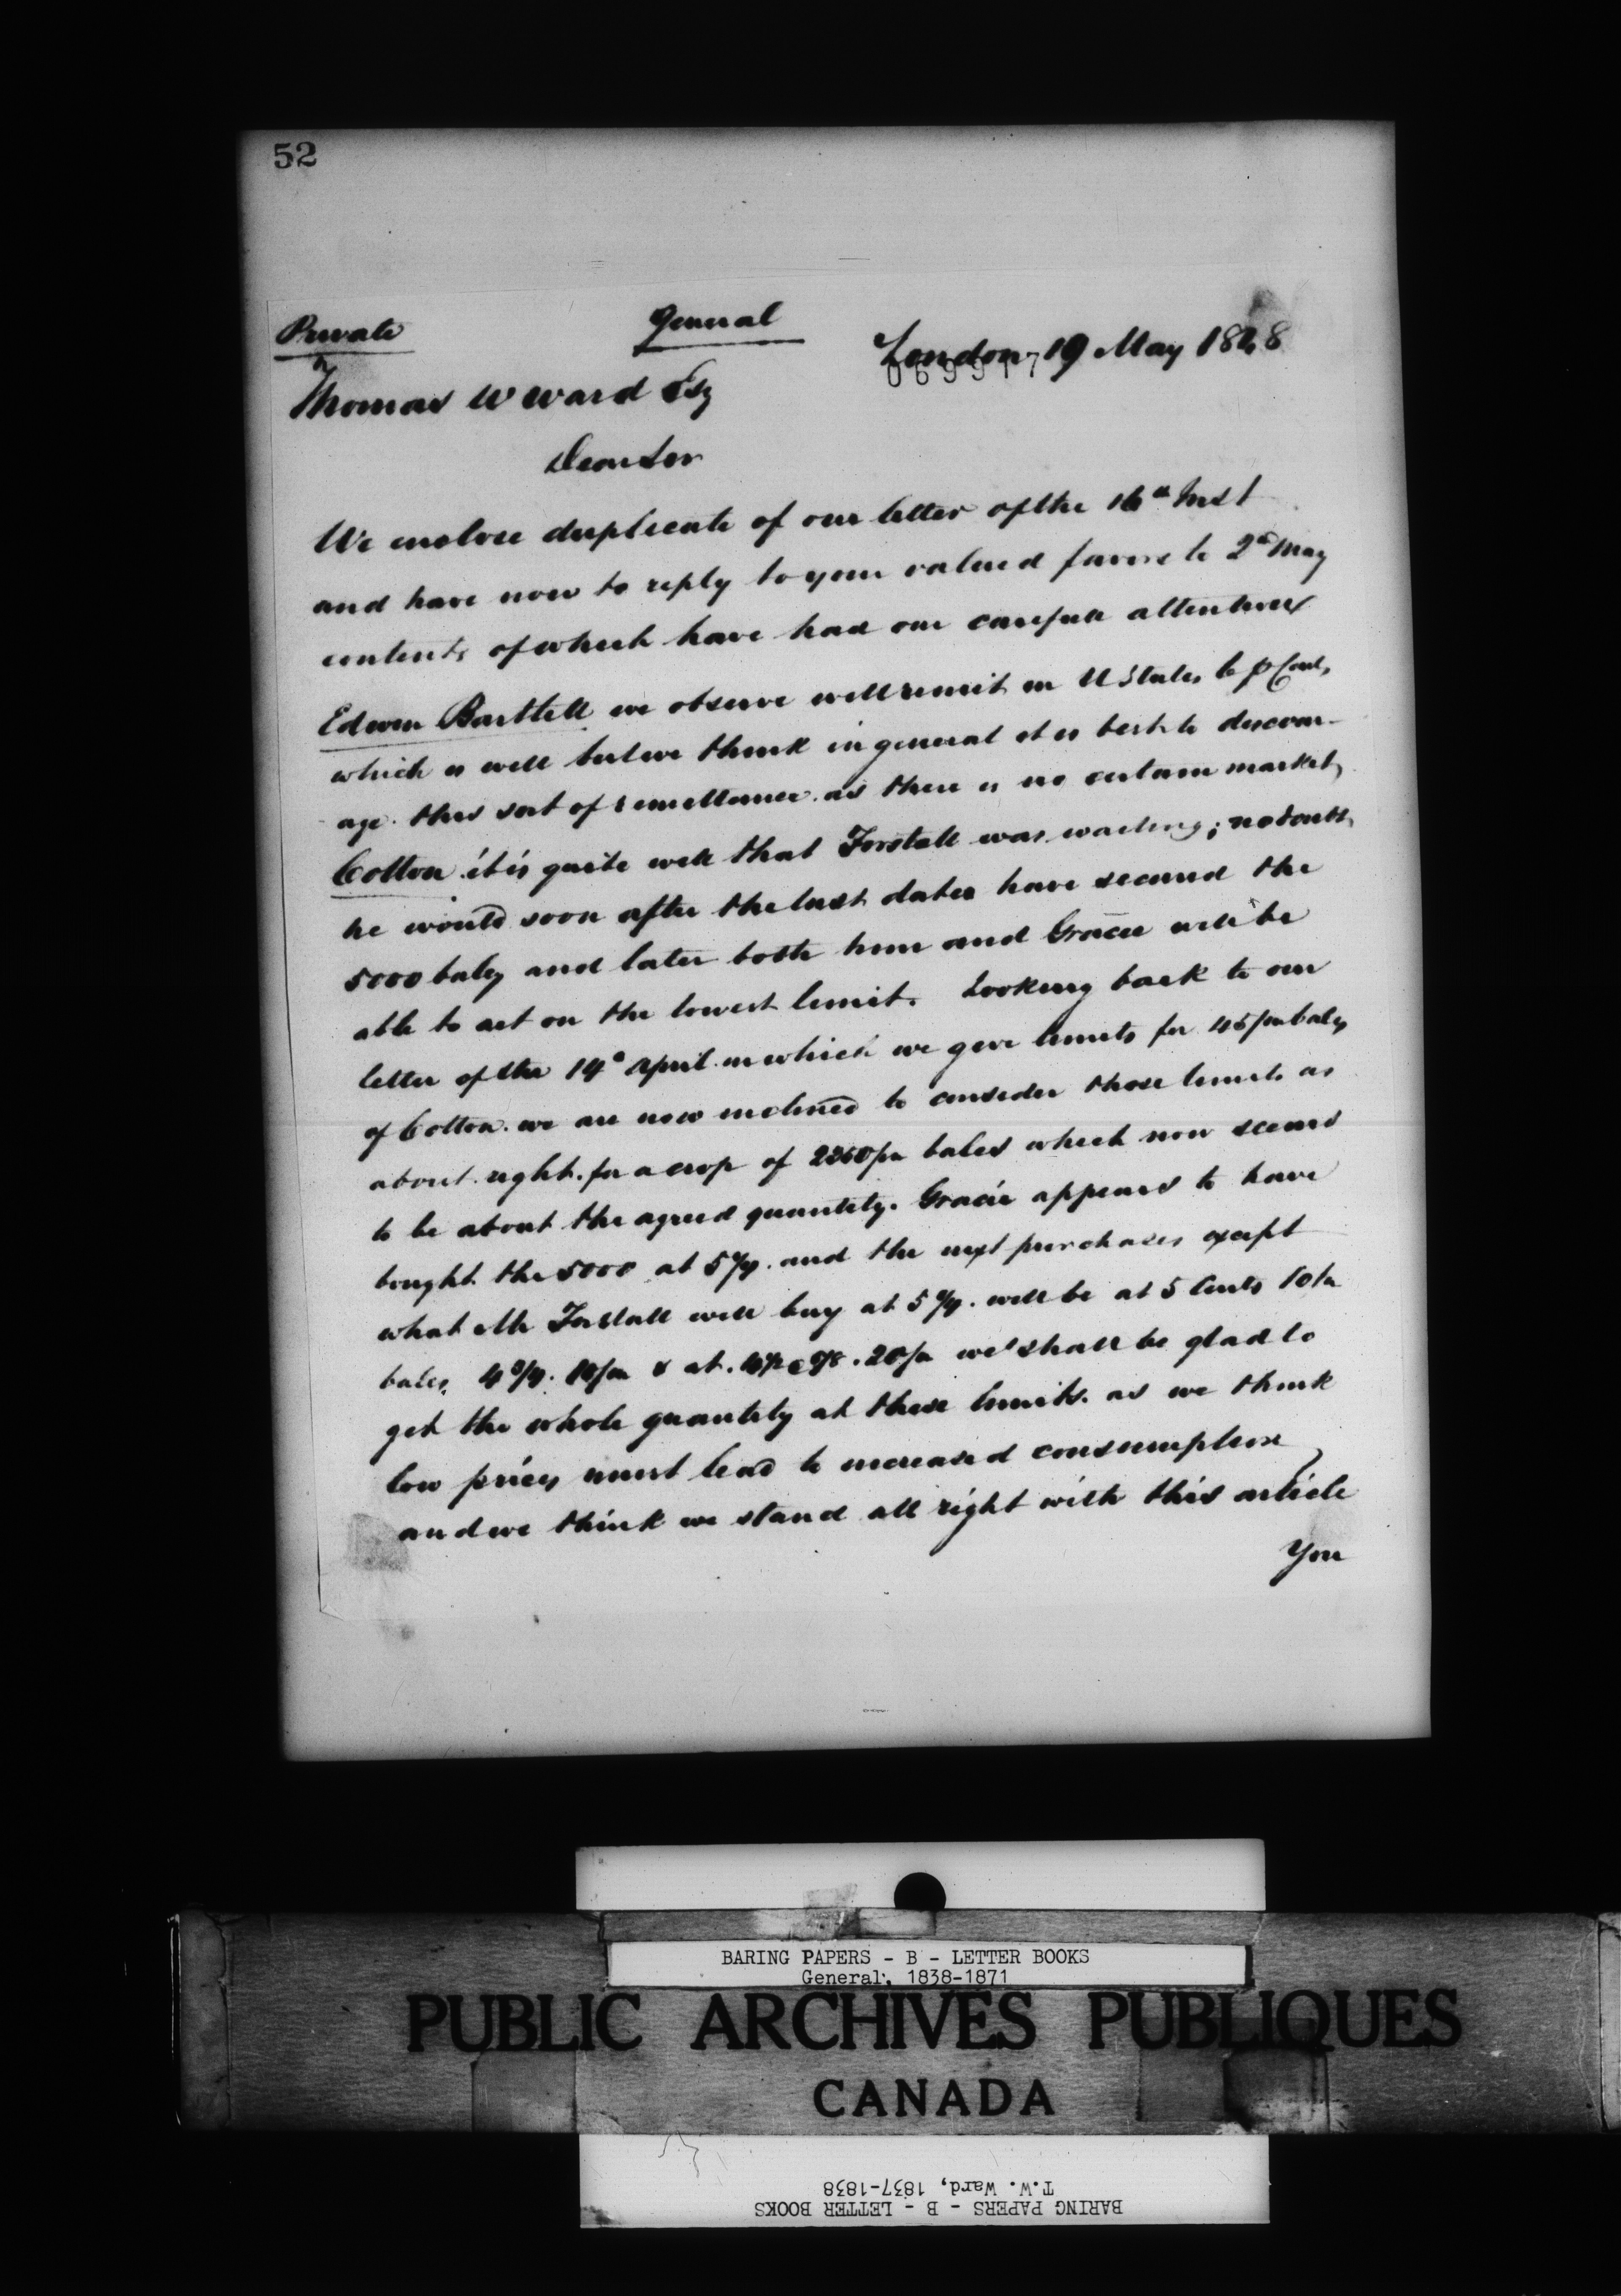 52
Private
General
London 19 May 1848
069917
Thomas W Ward Esq
Dear Sir
We enclose duplicate of our letter of the 16th Inst
and have now to reply to your valued favors to 2d May
contents of which have had our careful attention
Edwin Bartlett we observe will remit in U States 6 p Cents,
which is well but we think in general it is best to discour-
age this sort of remittance as there is no certain market,
Cotton it is quite well that Forstall was waiting; no doubt
he would soon after the last dates have secured the
5000 bales and later both him and Gracie will be
able to act on the lowest limit. Looking back to our
letter of the 14th April in which we gave limits for 45/m bales
of Cotton. we are now inclined to consider those limits as
about right for a crop of 2250/m bales which now seems
to be about the agreed quantity. Gracie appears to have
bought the 5000 at and the next purchases except
what Mr Forstall will buy at will be at 5 Cents 10/m
bales, 4¾. 10/m & at 20/m we shall be glad to
get the whole quantity at these limits. as we think
low prices must lead to increased consumption
and we think we stand all right with this article
You
BARING PAPERS - B - LETTER BOOKS
General, 1838-1871
PUBLIC ARCHIVES PUBLIQUES
CANADA
BARING PAPERS - B - LETTER BOOKS
T.W. Ward, 1837-1838